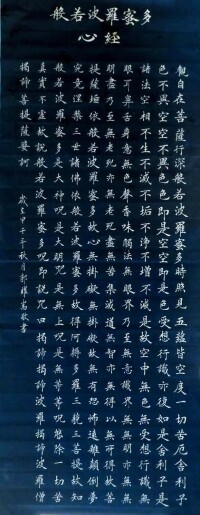 般若波羅蜜多
心經
觀自在菩薩行深般若波羅蜜多時照見五蘊皆空度一切苦厄舍利子
色不異空空不異色色即是空空即是色受想行識亦復如是舍利子是
諸法空相不生不滅不垢不淨不增不減是故空中無色無受想行識無
眼耳鼻舌身意無色聲香味觸法無眼界乃至無意識界無無明亦無
無明盡乃至無老死亦無老死盡無苦集滅道無智亦無得以無所得故菩
提薩埵依般若波羅蜜多故心無掛礙無掛礙故無有恐怖遠離顛倒夢
想究竟涅槃三世諸佛依般若波羅蜜多故得阿耨多羅三藐三菩提故知
般若波羅蜜多是大神咒是大明咒是無上咒是無等等咒能除一切苦
真實不虛故說般若波羅蜜多咒即說咒曰揭諦揭諦波羅揭諦波羅僧
揭諦菩提薩婆訶
甲午年秋月敬書